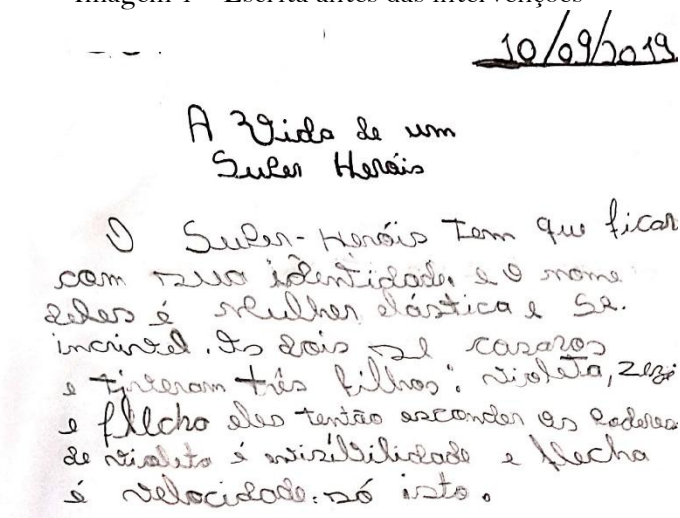 Imagem 1 – Escrita antes das intervenções
10/09/2019
A Vida de um
Super Heróis
O Super-Heróis tem que ficar
com sua identidade. e o nome
deles é Mulher elástica e Se.
incrivel. Os dois se casaros
e tiveram três filhos: violeta, zezé
e flecha eles tentão esconder os poderes
de violeta é invisibilidade e flecha
é velocidade. só isto.